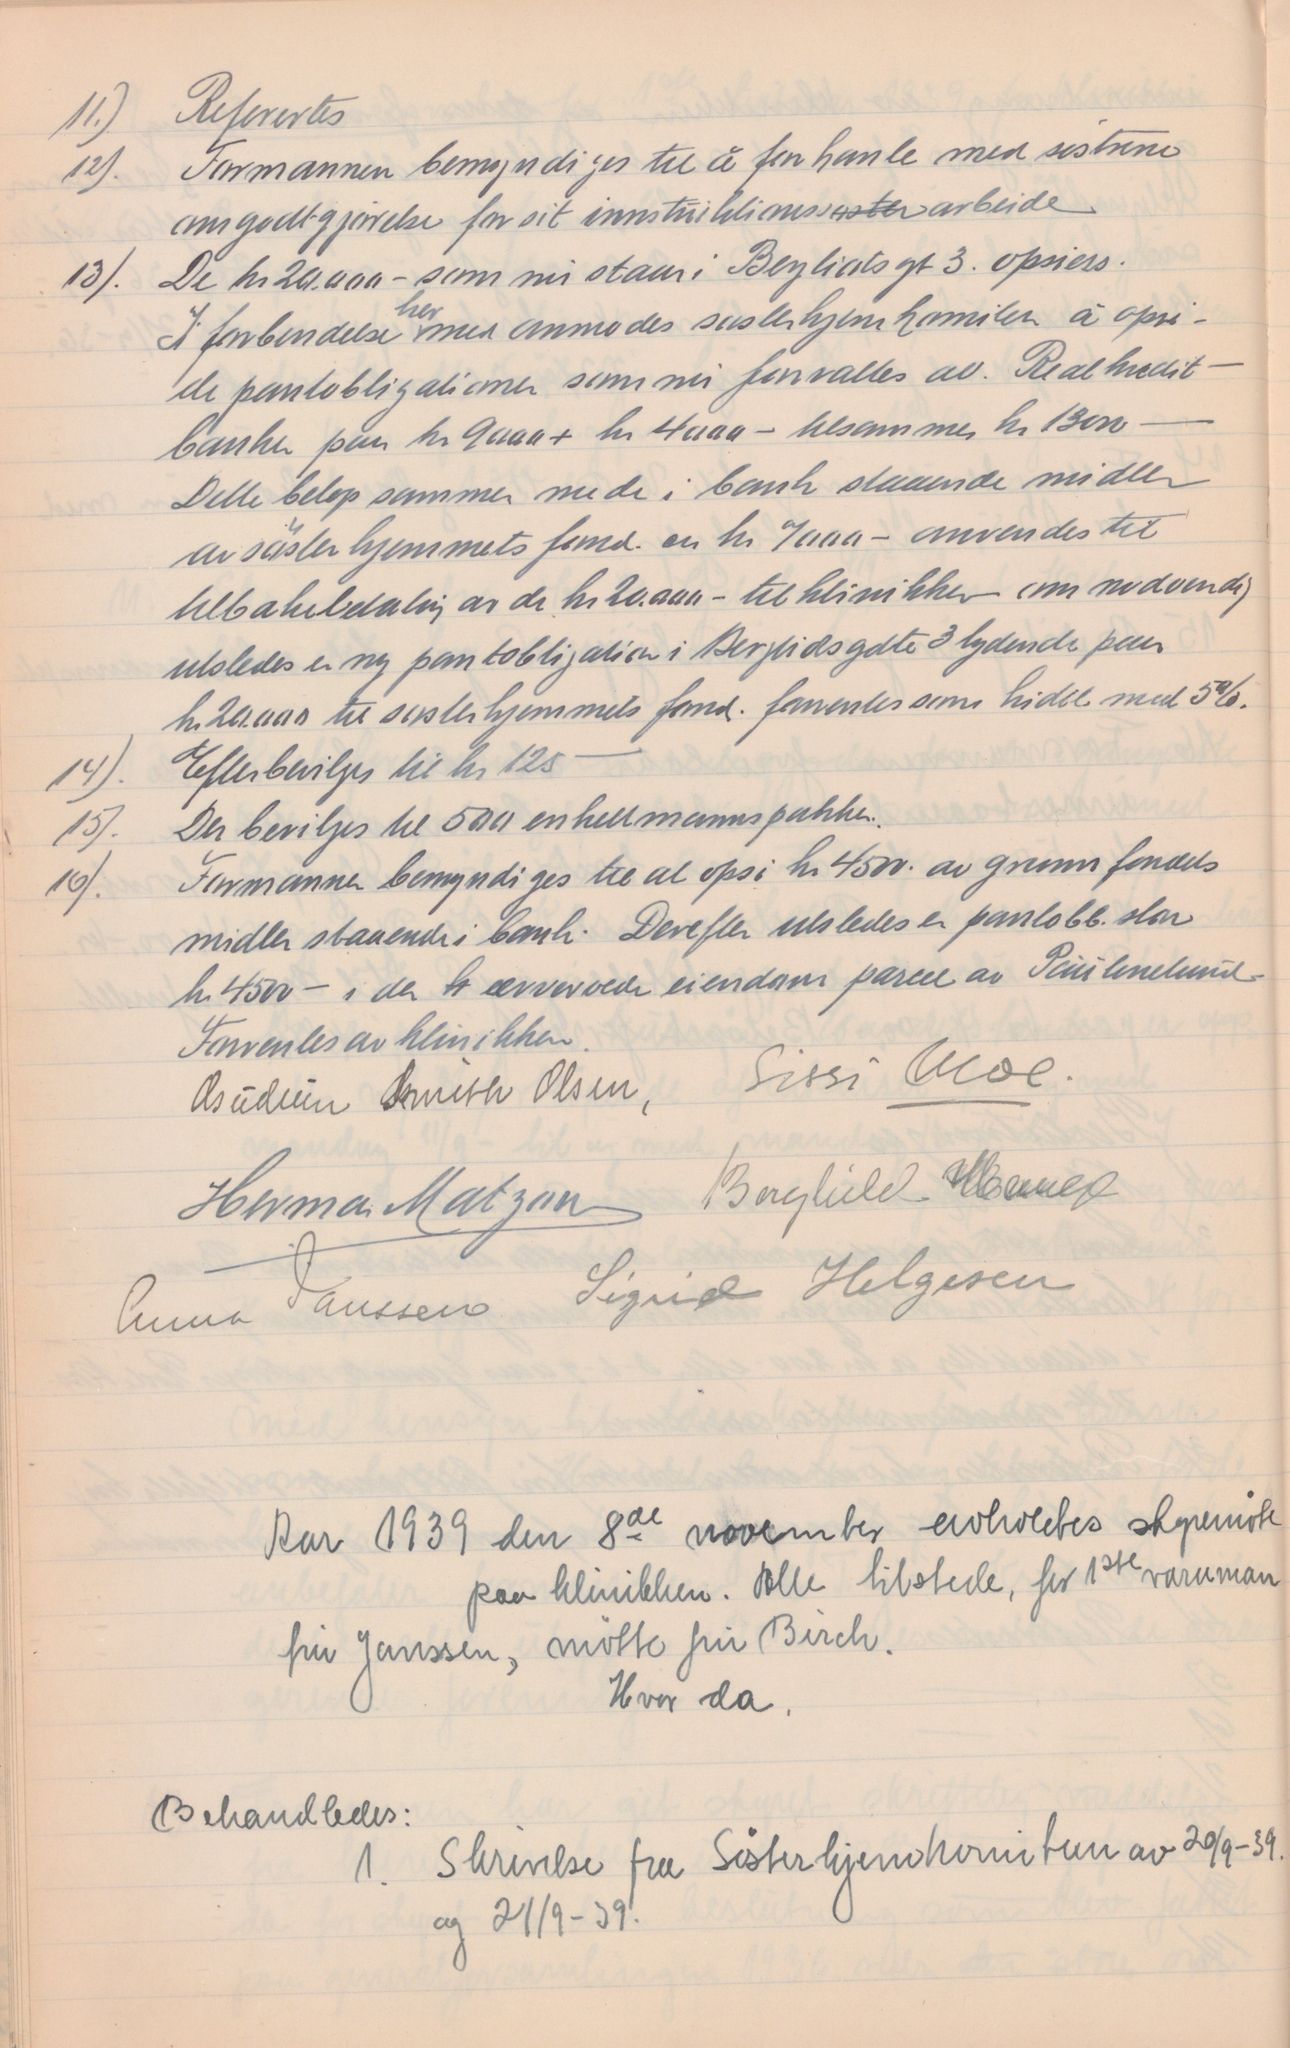 11.) Referertes
12). Formannen bemyndiges til å forhanle med søstrene
om godtgjørelse for sit innstruktions arbeide
13). De kr 20.000 - som nu staar i Bergliots gt 3. opsiers.
I forbendelse her med anmodes søsterhjem komiten å opsi-
de pantobligationer som nu forvaltes av. Realkredit-
banken paa kr 9000 + kr 4000 - tilsammen kr 13000 —
Dette beløp sammen med de i bank staaende midler
av søsterhjemmets fond. en kr 7000 - anvendes til
tilbakebetaling av de kr 20.000 - til klinikken om nødvendig
utstedes en ny pantobligation i Bergliotsgate 3 lydende paa
kr 20.000 til søsterhjemmets fond. forrentes som hidtil med 5%.
14). Efterbevilges til kr 125 —
15). Der bevilges til 500 enkeltmannspakker.
16). Formannen bemyndiges til at opsi kr 4500. av grunnfondets
midler staaende i bank. Derefter utstedes en pantobl. stor
kr 4500 - i den erververvede eiendom parcel av Paulinelund-
Forrentes av klinikken.
Smith Olsen, Sissi Moe.
Herman Matzon Borghild
Anna Janssen Sigrid Helgesen
Aar 1939 den 8de november avholdtes styremöte
paa klinikken. Alle tilstede, for 1ste varaman
fru Janssen, mötte fru Birch.
Hvor da.
Behandledes:
1. Skrivelse fra Sösterhjemkomiteen av 20/9-39.
og 21/9-39.